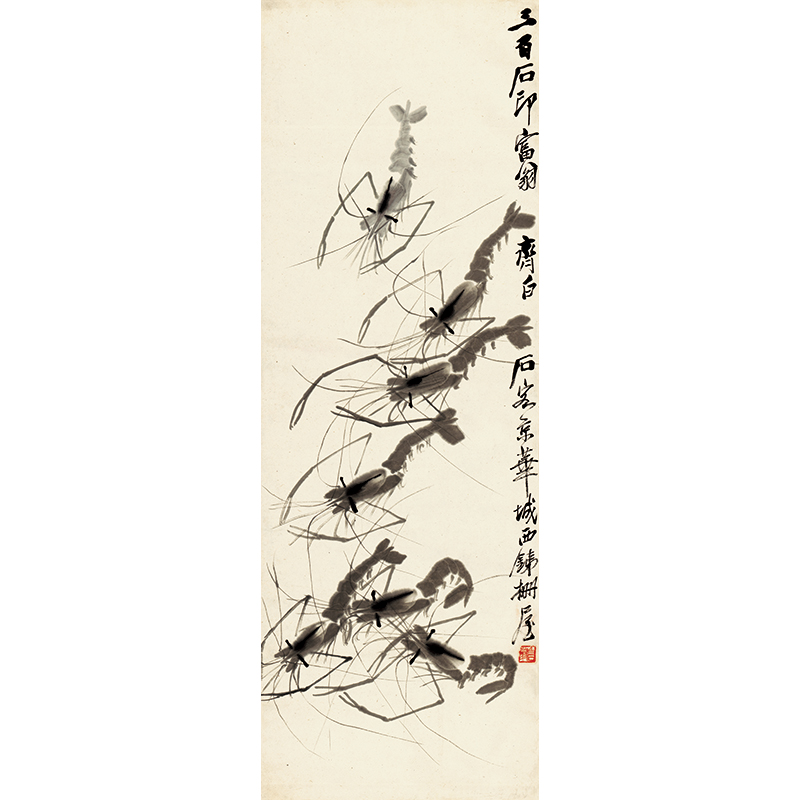 三百石印富翁齊白石客京華城西鐵柵屋